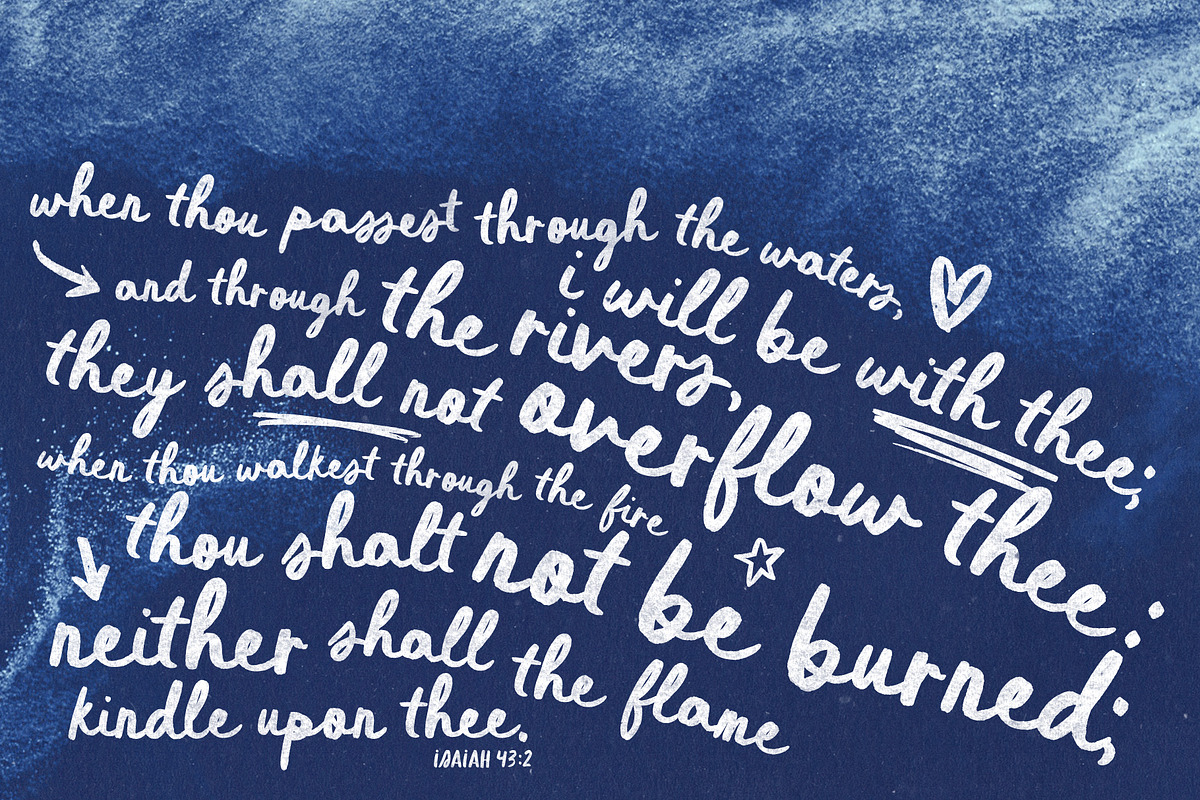 when thou passest through the waters,
i will be with thee;
and through the rivers,
they shall not overflow thee:
when thou walkest through the fire
thou shalt not be burned;
neither shall the flame
kindle upon thee.
isaiah 43:2